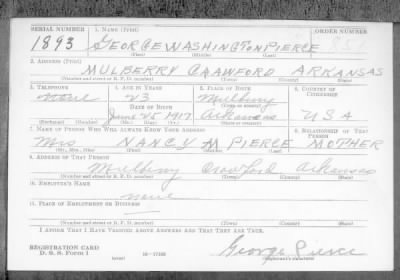 SERIAL NUMBER 1. NAME (Print) ORDER NUMBER
1893 GEORGE WASHINGTON PIERCE
(First) (Middle) (Last)
2. ADDRESS (Print)
MULBERRY CRAWFORD ARKANSAS
(Number and street or R. F. D. number) (Town) (County) (State)
3. TELEPHONE 4. AGE IN YEARS 5. PLACE OF BIRTH 6. COUNTRY OF CITIZENSHIP
None 23 Mulberry
DATE OF BIRTH (Town or county)
June 25 1917 Arkansas USA
(Exchange) (Number) (Mo.) (Day) (Yr.) (State or country)
7. NAME OF PERSON WHO WILL ALWAYS KNOW YOUR ADDRESS 8. RELATIONSHIP OF THAT PERSON
Mrs NANCY M PIERCE MOTHER
(Mr., Mrs., Miss) (First) (Middle) (Last)
9. ADDRESS OF THAT PERSON
Mulberry Crawford Arkansas
(Number and street or R. F. D. number) (Town) (County) (State)
10. EMPLOYER'S NAME
none
11. PLACE OF EMPLOYMENT OR BUSINESS
(Number and street or R. F. D. number) (Town) (County) (State)
I AFFIRM THAT I HAVE VERIFIED ABOVE ANSWERS AND THAT THEY ARE TRUE.
REGISTRATION CARD
D. S. S. Form 1 (over) 16—17105 George Pierce
(Registrant's signature)